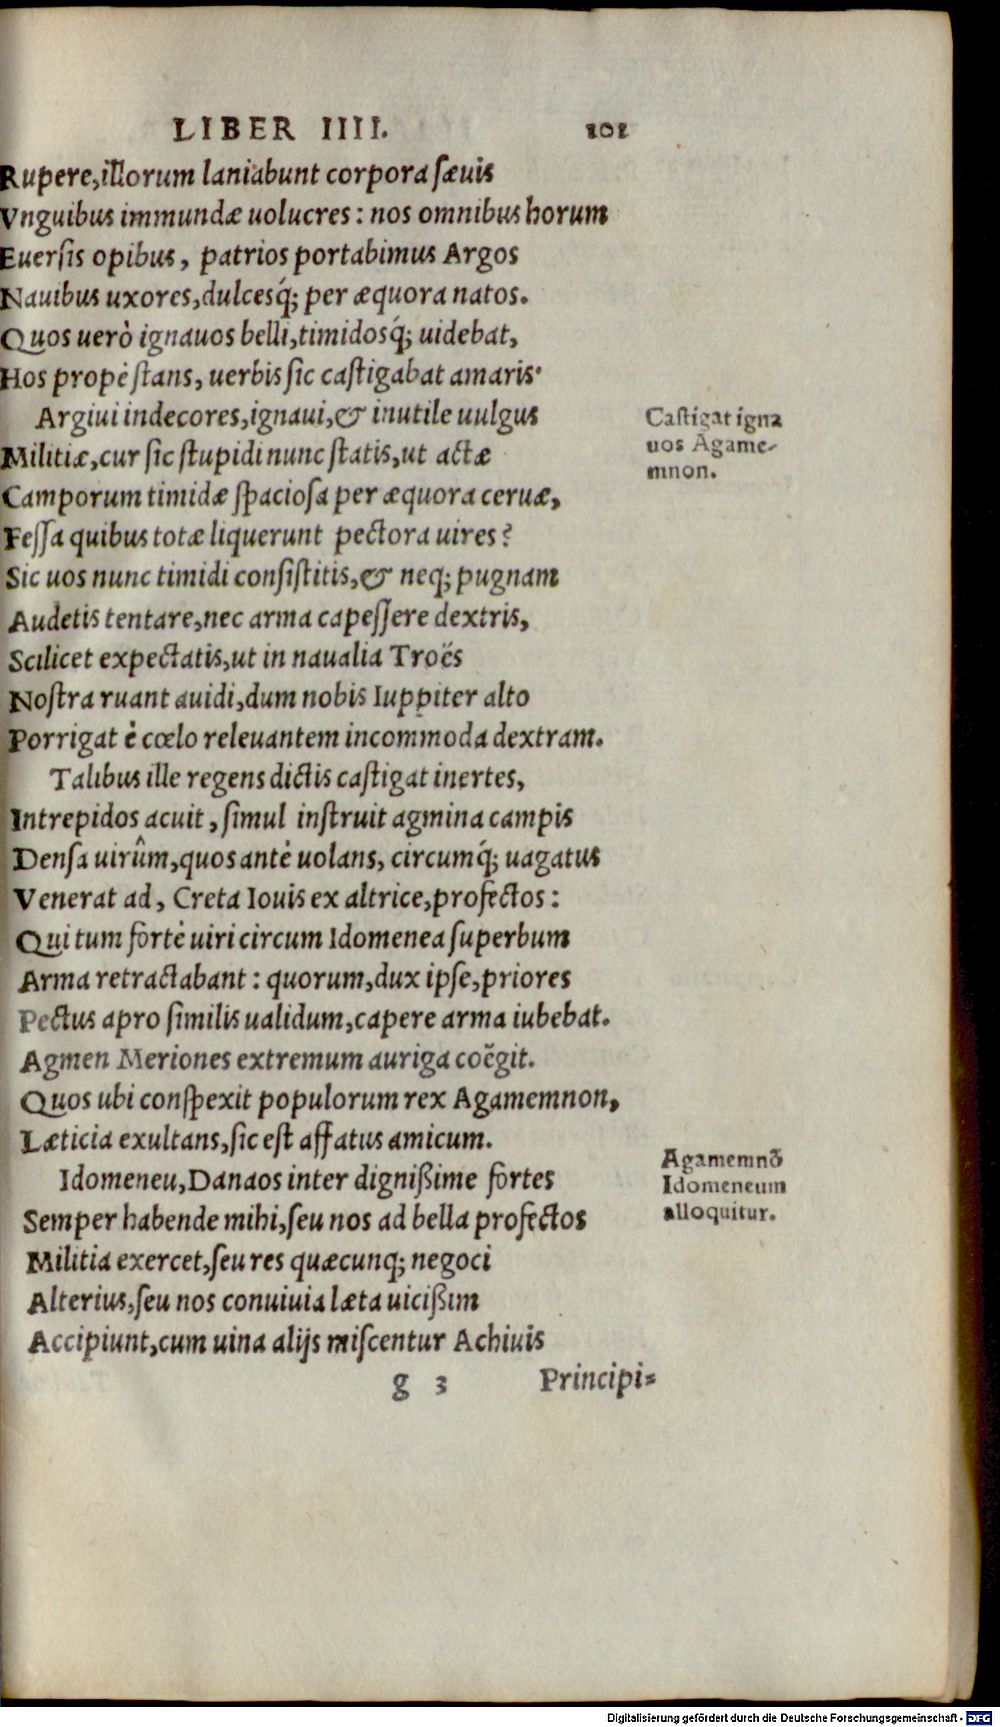 LIBER IIII. 101
Rupere, illorum laniabunt corpora sæuis
Vnguibus immundæ uolucres: nos omnibus horum
Euersis opibus, patrios portabimus Argos
Nauibus uxores, dulcesq́; per æquora natos.
Quos uerò ignauos belli, timidosq́; uidebat,
Hos propè stans, uerbis sic castigabat amaris.
Argiui indecores, ignaui, & inutile uulgus
Castigat igna
Militiæ, cur sic stupidi nunc statis, ut actæ
uos Agame-
mnon.
Camporum timidæ spaciosa per æquora ceruæ,
Fessa quibus totæ liquerunt pectora uires?
Sic uos nunc timidi consistitis, & neq; pugnam
Audetis tentare, nec arma capessere dextris,
Scilicet expectatis, ut in naualia Troës
Nostra ruant auidi, dum nobis Iuppiter alto
Porrigat è cœlo releuantem incommoda dextram.
Talibus ille regens dictis castigat inertes,
Intrepidos acuit, simul instruit agmina campis
Densa uirûm, quos antè uolans, circumq́; uagatus
Venerat ad, Creta Iouis ex altrice, profectos:
Qui tum fortè uiri circum Idomenea superbum
Arma retractabant: quorum, dux ipse, priores
Pectus apro similis ualidum, capere arma iubebat.
Agmen Meriones extremum auriga coëgit.
Quos ubi conspexit populorum rex Agamemnon,
Læticia exultans, sic est affatus amicum.
Agamemnō
Idomeneu, Danaos inter dignißime fortes
Idomeneum
alloquitur.
Semper habende mihi, seu nos ad bella profectos
Militia exercet, seu res quæcunq; negoci
Alterius, seu nos conuiuia læta uicißim
Accipiunt, cum uina alijs miscentur Achiuis
g 3 Principi-
Digitalisierung gefördert durch die Deutsche Forschungsgemeinschaft - DFG